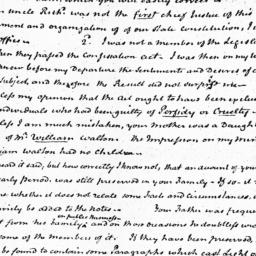 uncle Rich.d was not the first Chief Justice of this
ment and organization of of our State Constitution, I
office.
2. I was not a member of the Legisla
hen they passed the Confiscation Act. I was then on my
know before my Departure the Sentiments and Desires of
Subject, and therefore the Result did not surprise me
my opinion that the Act ought to have been
individuals who had been guilty of Perfidy or Cruelty
less I am much mistaken, your mother was a Daugh
of Mr. William Walton. The Impression on my mind
iam Walton had no Children.
said it said, but how correctly I know not, that an account of your
early period, was still preserved in your Family. If so, it
whether it does not relate some Facts and Circumstances,
be added to the notes. Your Father was frequen
on Public Business
from his family; and on those occasions he doubtless
some of the members of it. If they have been preserved,
be found to contain some Paragraphs which cast light